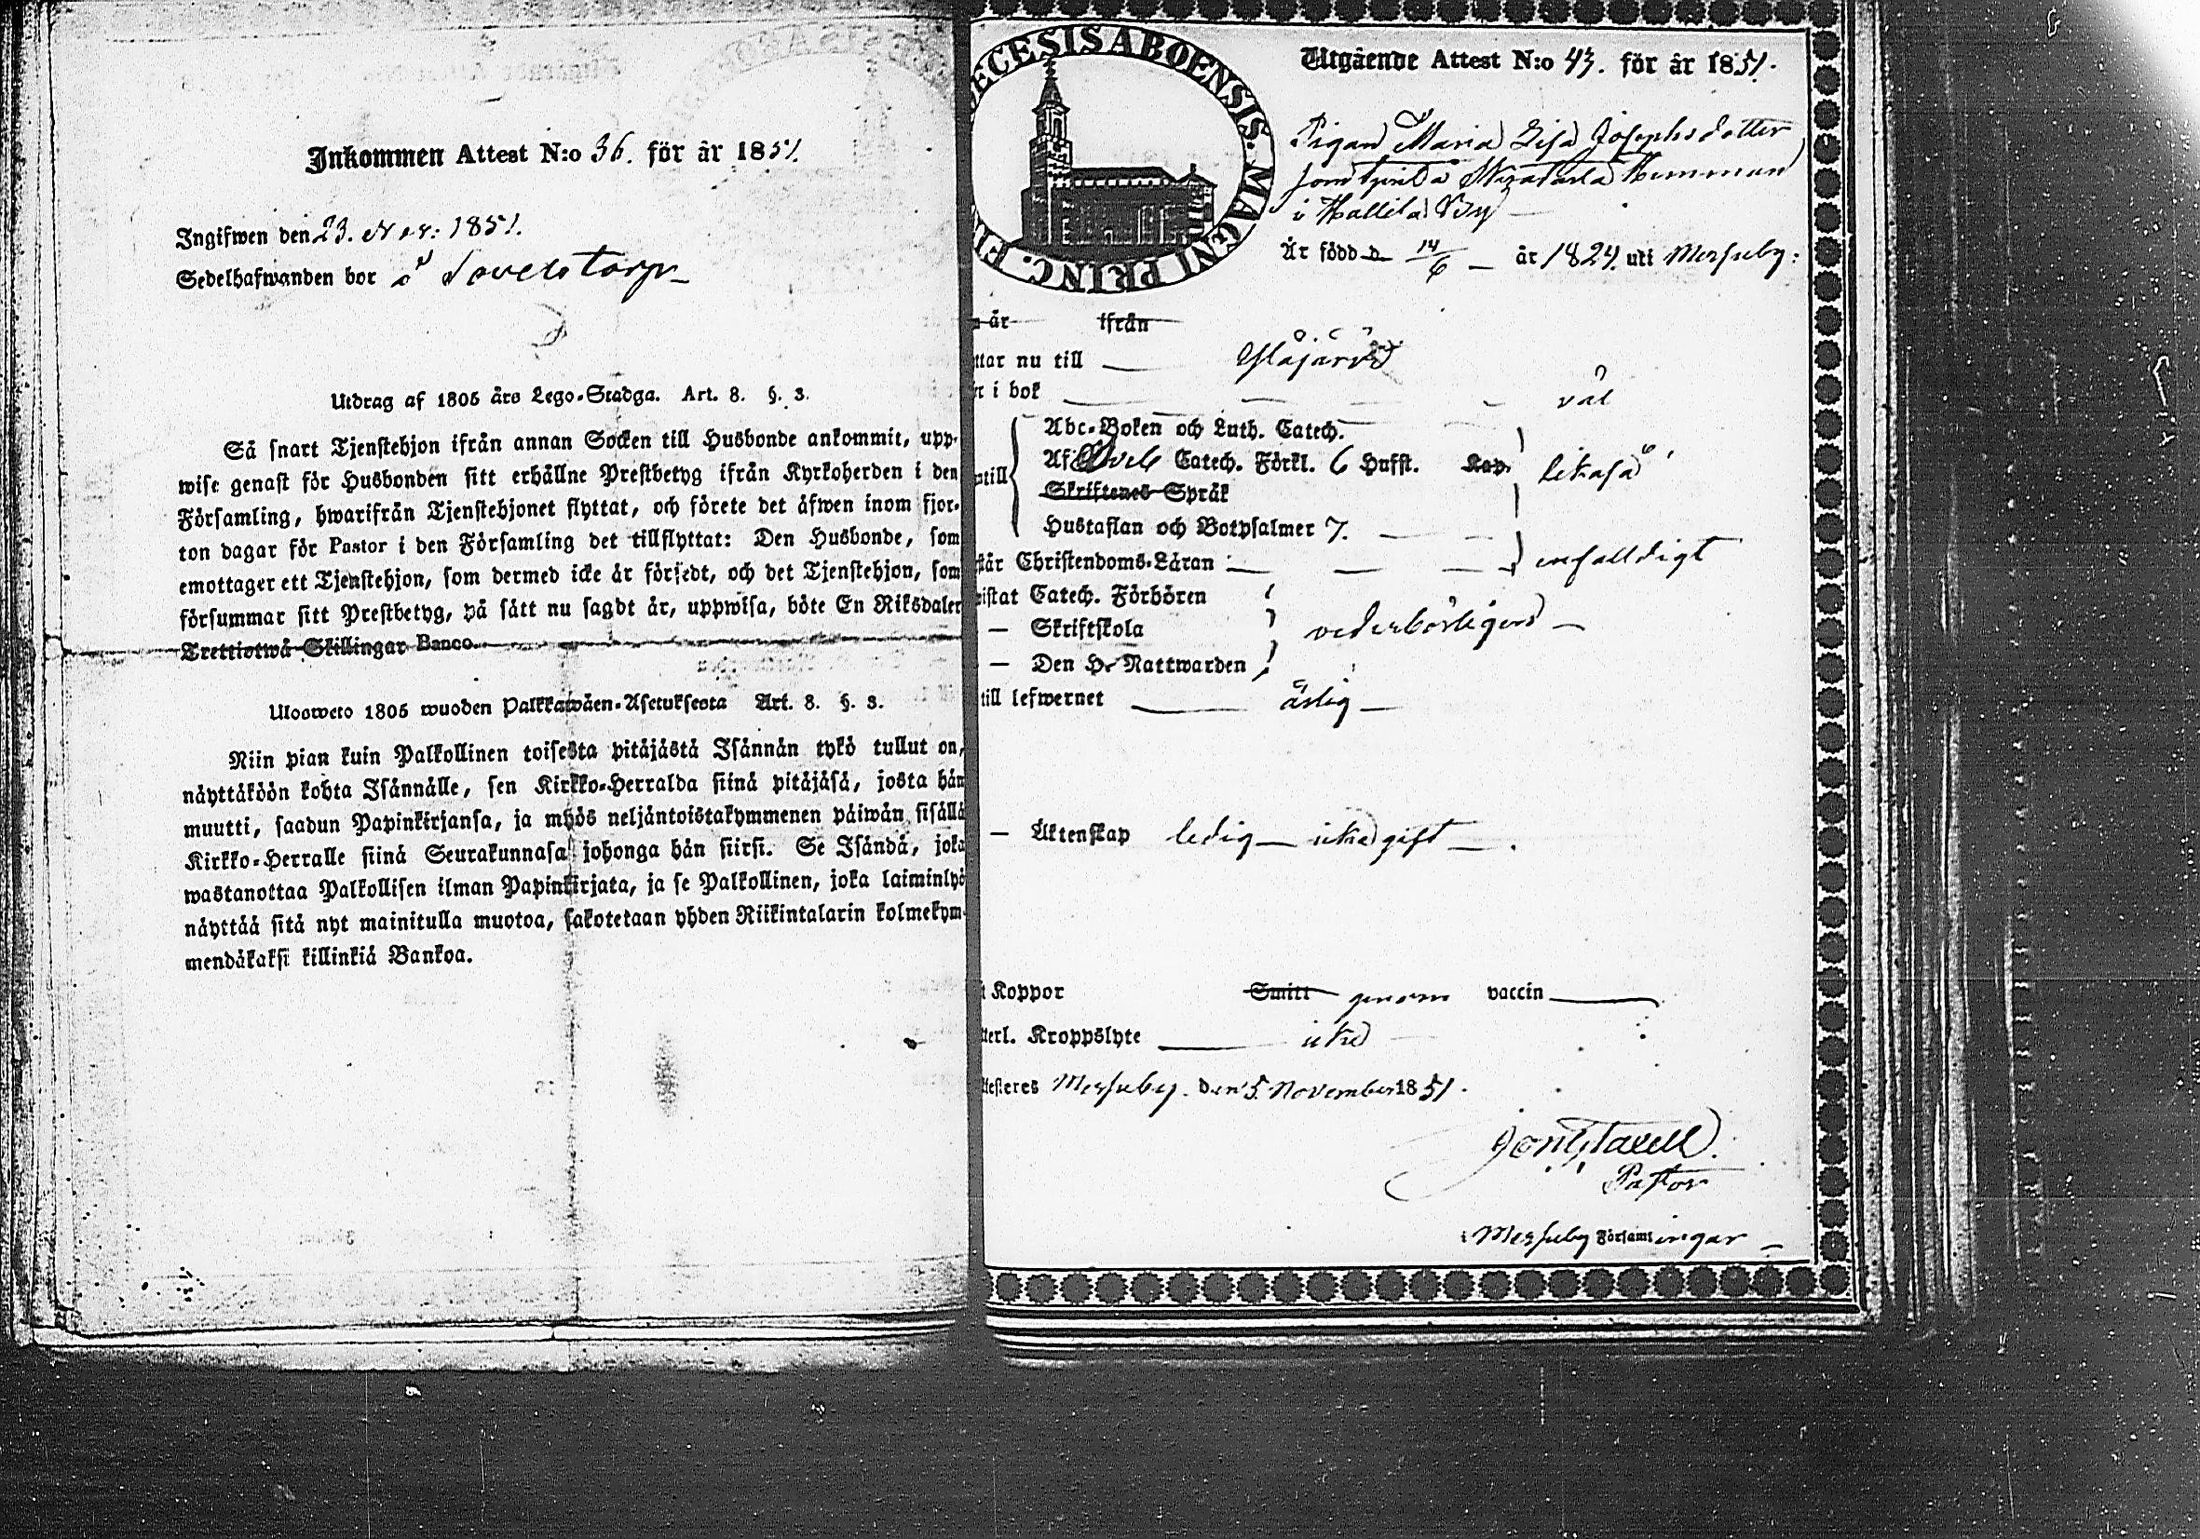 Inkommen Attest N:o 36. för år 1851.
Ingifwen den 23. Nov: 1851.
Sedelhafwanden bor å
Utdrag af 1805 års Lego-Stadga. Art. 8. §. 3.
Så snart Tjenstehjon ifrån annan Socken till Husbonde ankommit, upp-
wise genast för Husbonden sitt erhållne Prestbetyg ifrån Kyrkoherden i den
Församling, hwarifrån Tjenstehjonet flyttat, och förete det åfwen inom fjor-
ton dagar för Pastor i den Församling det tillflyttat: Den Husbonde, som
emottager ett Tjenstehjon, som dermed icke är försedt, och det Tjenstehjon, som
försummar sitt Prestbetyg, på sätt nu sagdt är, uppwisa, böte En Riksdaler
Trettiotwå Skillingar Banco.
Ulosweto 1805 wuoden Palkkawäen-Asetuksesta Art. 8. §. 3.
Niin pian kuin Palkollinen toisesta pitäjästä Isännän tykö tullut on,
näyttäköön kohta Isännälle, sen Kirkko-Herralda siinä pitäjäsä, josta hän
muutti, saadun Papinkirjansa, ja myös neljäntoistakymmenen päiwän sisällä
Kirkko-Herralle siinä Seurakunnasa johonga hän siirsi. Se Isändä, joka
wastanottaa Palkollisen ilman Papinkirjata, ja se Palkollinen, joka laiminlyö
näyttää sitä nyt mainitulla muotoa, sakotetaan yhden Riikintalarin kolmekym-
mendäkaksi killinkiä Bankoa.
ECESIS ABOENSIS. MAGNI PRINC. FI
Utgående Attest N:o 43. för år 1851.
Pigan Maria Lisa Josephsdotter
som tjent å Hemman
i Hallila By
Är född d. 14/6 år 1824. uti Merfuby:
år ifrån
ttar nu till Ylöjärvi
i bok väl
Abc-Boken och Luth. Catech.
till Af Catech. Förkl. 6 Hufst. Kap. likaså
Skriftenes Språk
Hustaflan och Botpsalmer 7.
står Christendoms-Läran enfalldigt
istat Catech. Förhören
— Skriftskola vederbörligen
— Den H. Nattwarden
till lefwernet ärlig
— Äktenskap ledig icke gift
t Koppor Smitt genom vaccin
tterl. Kroppslyte icke
testeres Merfuby. den 5. November 1851.
Pastor
i Merfuby Församlingar